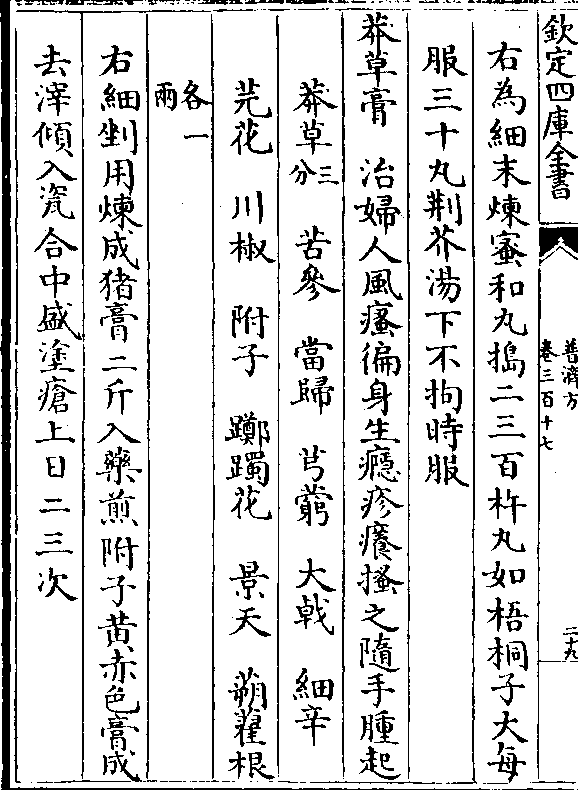 欽定四庫全書
普濟方
卷三百十七
二十九
右為細末煉蜜和丸搗二三百杵丸如梧桐子大每
服三十丸荆芥湯下不拘時服
莽草膏 治婦人風瘙徧身生癮疹癢搔之隨手腫起
莽草三分 苦參 當歸 芎藭 大戟 細辛
芫花 川椒 附子 躑躅花 景天 蒴藋根
各一兩
右細剉用煉成猪膏二斤入藥煎附子黄赤色膏成
去滓傾入瓷合中盛塗瘡上日二三次